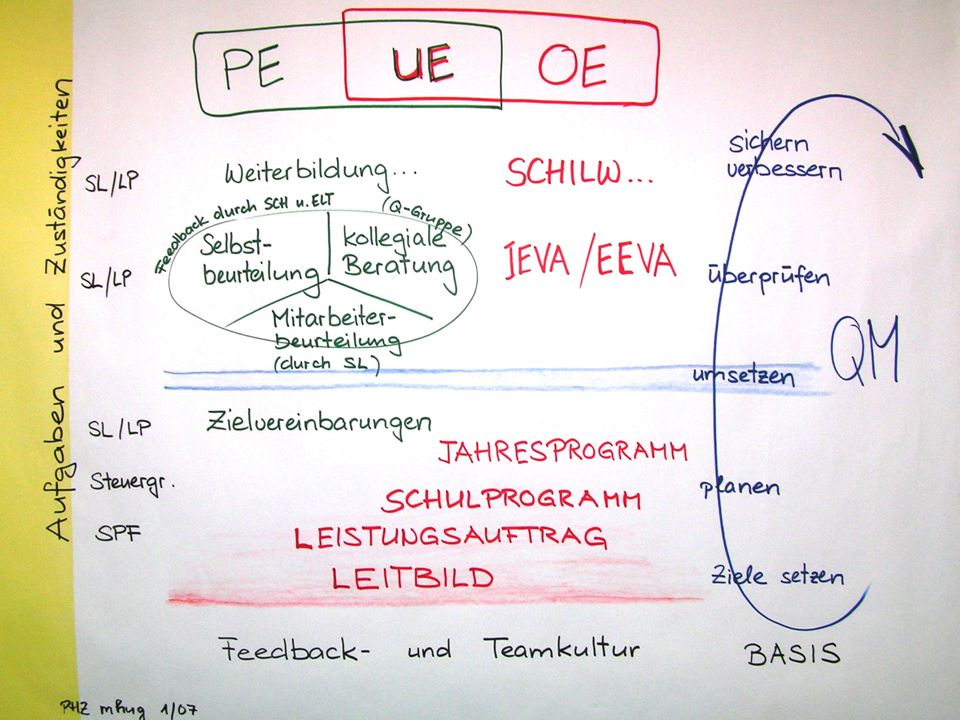 PE UE OE
Aufgaben und Zuständigkeiten
SL/LP
Weiterbildung...
SCHILW...
sichern
verbessern
Feedback durch SCH u. ELT
(Q-Gruppe)
Selbst-
beurteilung
kollegiale
Beratung
Mitarbeiter-
beurteilung
(durch SL)
SL/LP
IEVA/EEVA
überprüfen
QM
umsetzen
SL/LP
Zielvereinbarungen
JAHRESPROGRAMM
Steuergr.
SCHULPROGRAMM
planen
SPF
LEISTUNGSAUFTRAG
LEITBILD
Ziele setzen
Feedback- und Teamkultur
BASIS
PHZ mhug 1/07